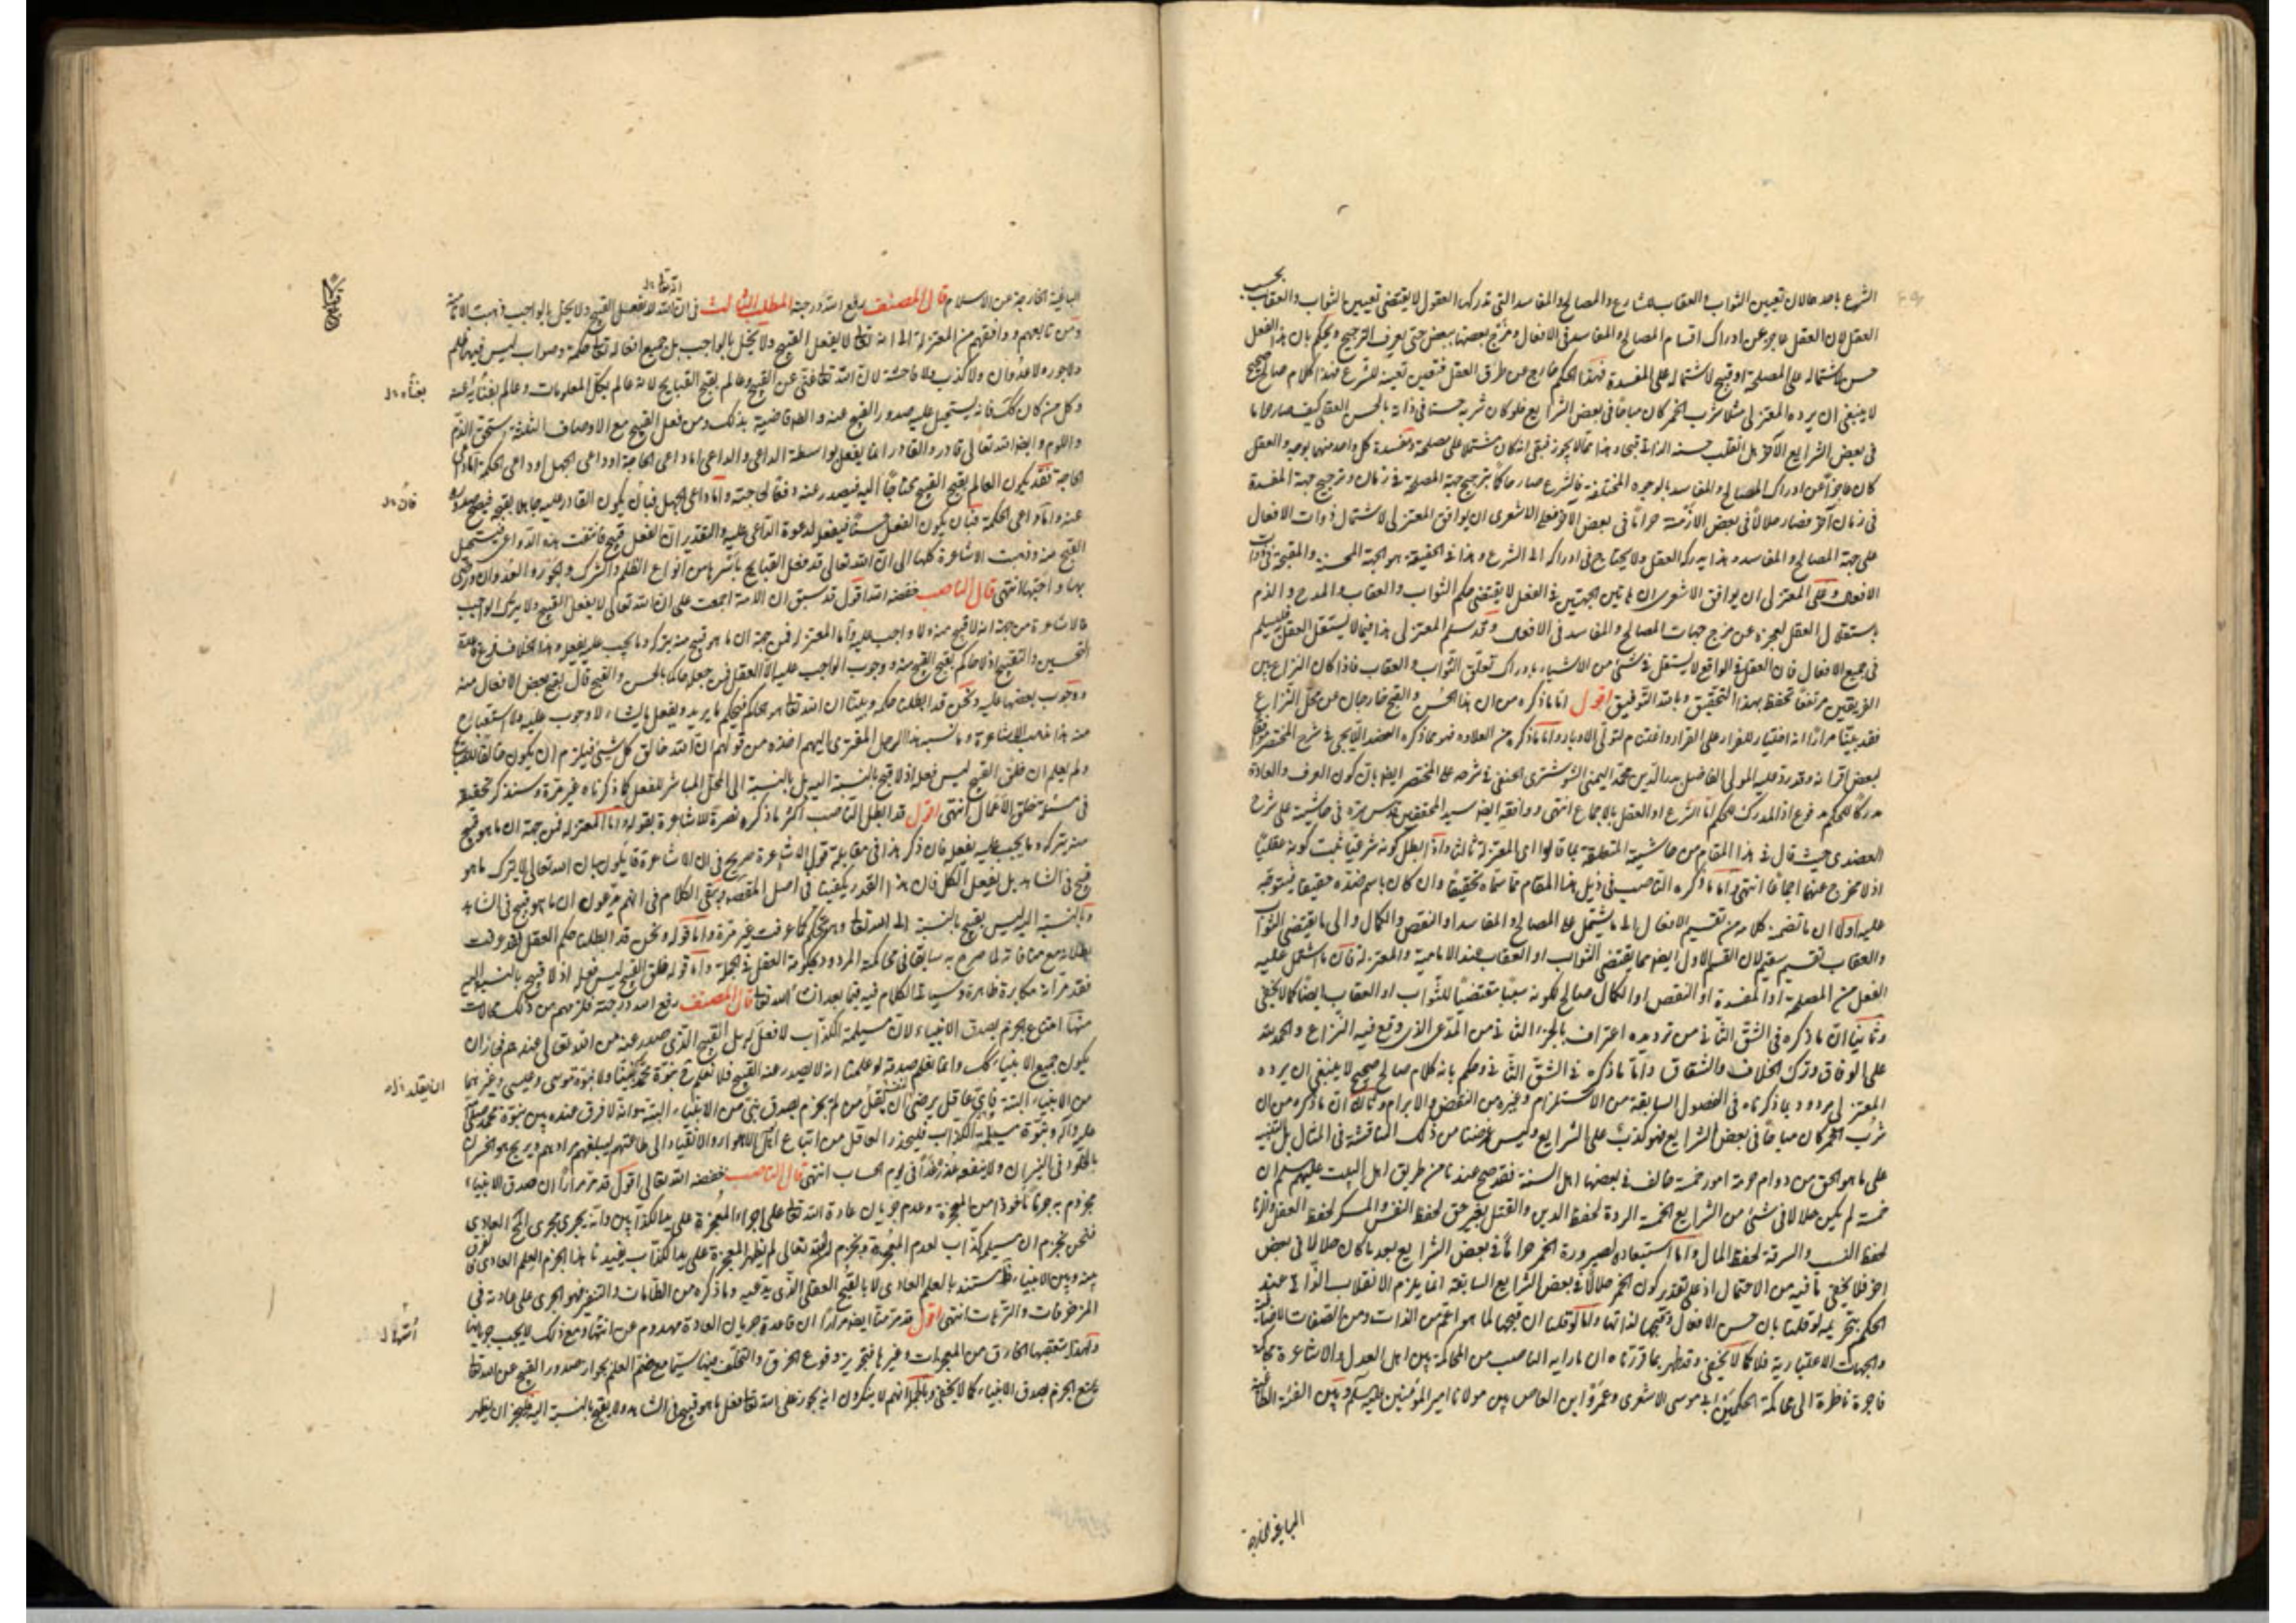 الشرع باحد حالان تعيين الثواب و العقاب للشارع و المصالح و المفاسد التى تدركها العقول لا يقتضى تعيين الثواب و العقاب بحسب
العقل لان العقل عاجز عن ادراك اقسام المصالح و المفاسد فى الافعال و مزج بعضها ببعض حتى يعرف الترجيح و يحكم بان هذا الفعل
حسن لاشتماله على المصلحة او قبيح لاشتماله على المفسدة فهذا الحكم خارج عن طوق العقل فتعين تعينه للشرع فهذا كلام صالح صحيح
لا ينبغى ان يرده المعتزلى مثلا شرب الخمر كان مباحا فى بعض الشرايع فلو كان شربه حسنا فى ذاته بالحسن العقلى كيف صار حراما
فى بعض الشرايع الآخر هل انقلب حسنه الذاتى قبحا و هذا مما لا يجوز فبقى انه كان مشتملا على مصلحة و مفسدة كل واحد منهما بوجه و العقل
كان عاجزا عن ادراك المصالح و المفاسد بالوجوه المختلفة فالشرع صار حاكما بترجيح جهة المصلحة فى زمان و ترجيح جهة المفسدة
فى زمان آخر فصار حلالا فى بعض الأزمنة حراما فى بعض الآخر فعلى الاشعرى ان يوافق المعتزلى لاشتمال ذوات الافعال
على جهة المصالح و المفاسد و هذا يدركه العقل و لا يحتاج فى ادراكه الى الشرع و هذا فى الحقيقة هو الجهة المحسنة و المقبحة فى ذوات
الافعال و على المعتزلى ان يوافق الاشعرى ان هاتين الجهتين فى الفعل لا يقتضى حكم الثواب و العقاب و المدح و الذم
باستقلال العقل لعجزه عن مزج جهات المصالح و المفاسد فى الافعال و قد سلم المعتزلى هذا فيما لا يستقل العقل به فليسلم
فى جميع الافعال فان العقل فى الواقع لا يستقل فى شئ من الاشياء بادراك تعلق الثواب و العقاب فاذا كان النزاع بين
الفريقين مرتفعا تحفظ بهذا التحقيق و بالله التوفيق اقول اما ما ذكره من ان هذا الحسن و القبح خارجان عن محل النزاع
فقد بينا مرارا انه اختيار للفرار على القرار و اغتنام لتولى الادبار و اما ما ذكره من العلاوة فهو مما ذكره العضد الايجى فى شرح المختصر
لبعض اقرانه و قد رد عليه المولى الفاضل بدر الدين محمد اليمنى الشوشترى الحنفى فى شرحه على المختصر ايضا بان كون العرف و العادة
مدركا للحكم مدفوع اذ المدرك للحكم اما الشرع او العقل بالاجماع انتهى و وافقه ايضا سيد المحققين قدس سره فى حاشيته على شرح
العضدى حيث قال فى هذا المقام من حاشيته المتعلقة بما قالوا اى المعتزلة ثالثا و اذا بطل كونه شرعيا ثبت كونه عقليا
اذ لا مخرج عنهما اجماعا انتهى و اما ما ذكره الناصب فى ذيل هذا المقام مما سماه تحقيقا و ان كان باسم ضده حقيقا فيتوجه
عليه اولا ان ما تضمنه كلامه من تقسيم الافعال الى ما يشتمل على المصالح و المفاسد او النقص و الكمال و الى ما يقتضى الثواب
و العقاب تقسيم سقيم لان القسم الاول ايضا مما يقتضى الثواب او العقاب عند الامامية و المعتزلة فان ما اشتمل عليه
الفعل من المصلحة او المفسدة او النقص او الكمال صالح لكونه سببا مقتضيا للثواب او العقاب ايضا كما لا يخفى
و ثانيا ان ما ذكره فى الشق الثانى من ترديده اعتراف بالجزء الثانى من المدعى الذى وقع فيه النزاع و الحمد لله
على الوفاق و ترك الخلاف و الشقاق و اما ما ذكره فى الشق الثانى و حكم بانه كلام صالح صحيح لا ينبغى ان يرده
المعتزلى مردود بما ذكرناه فى الفصول السابقة من الاستلزام و غيره من النقض و الابرام و ثالثا ان ما ذكره من ان
شرب الخمر كان مباحا فى بعض الشرايع فهو كذب على الشرايع و ليس غرضنا من ذلك المناقشة فى المثال بل التنبيه
على ما هو الحق من دوام حرمة امور خمسة خالف فى بعضها اهل السنة فقد صح عندنا من طريق اهل البيت عليهم السلام ان
خمسة لم يكن حلالا فى شئ من الشرايع الخمسة الردة لحفظ الدين و القتل بغير حق لحفظ النفس و المسكر لحفظ العقل و الزنا
لحفظ النسب و السرقة لحفظ المال و اما استبعاده لصيرورة الخمر حراما فى بعض الشرايع بعد ما كان حلالا فى بعض
اخر فلا يخفى ما فيه من الاحتمال اذ على تقدير كون الخمر حلالا فى بعض الشرايع السابقة انما يلزم الانقلاب الذاتى عند
الحكم بتحريمه لو قلنا بان حسن الافعال و قبحها لذاتها و اما لو قلنا ان قبحها لما هو اعم من الذات و من الصفات الاضافية
و الجهات الاعتبارية فلا كما لا يخفى و قد ظهر بما قررناه ان ما رايه الناصب من المحاكمة بين اهل العدل و الاشاعرة محاكمة
فاجرة ناظرة الى محاكمة الحكمين ابى موسى الاشعرى و عمرو ابن العاص بين مولانا امير المؤمنين عليه السلام و بين الفئة الطاغية
الباغية الخارجة
الباغية الخارجة عن الاسلام قال المصنف رفع الله درجته المطلب الثالث فى ان الله تعالى لا يفعل القبيح و لا يخل بالواجب ذهبت الامامية
و من تابعهم و وافقهم من المعتزلة الى انه تعالى لا يفعل القبيح و لا يخل بالواجب بل جميع افعاله تعالى حكمة و صواب ليس فيها ظلم
و لا جور و لا عدوان و لا كذب و لا فاحشة لان الله تعالى غنى عن القبيح و عالم بقبح القبايح لانه عالم بكل المعلومات و عالم بغناه عنه
بغناه
و كل من كان كذلك فانه يستحيل عليه صدور القبيح عنه و الضرورة قاضية بذلك و من فعل القبيح مع الاوصاف الثلثة استحق الذم
و اللوم و ايضا الله تعالى قادر و القادر انما يفعل بواسطة الداعى و الداعى اما داعى الحاجة او داعى الجهل او داعى الحكمة اما داعى
الحاجة فقد يكون العالم بقبح القبيح محتاجا اليه فيصدر عنه دفعا لحاجته و اما داعى الجهل فبان يكون القادر عليه جاهلا بقبحه فيصح صدوره
عنه و اما داعى الحكمة فبان يكون الفعل حسنا فيفعله لدعوة الداعى عليه و التقدير ان الفعل قبيح فانتفت هذه الدواعى فيستحيل
القبيح منه و ذهبت الاشاعرة كلها الى ان الله تعالى قد فعل القبايح باسرها من انواع الظلم و الشرك و الجور و العدوان و رضى
بها و احبها انتهى قال الناصب خفضه الله اقول قد سبق ان الامة اجمعت على ان الله تعالى لا يفعل القبيح و لا يترك الواجب
فالاشاعرة من جهة انه لا قبيح منه و لا واجب عليه و اما المعتزلة فمن جهة ان ما هو قبيح منه يتركه و ما يجب عليه يفعله و هذا الخلاف فرع قاعدة
التحسين و التقبيح اذ لا حاكم بقبح القبيح منه و وجوب الواجب عليه الا العقل فمن جعله حاكما بالحسن و القبح قال بقبح بعض الافعال منه
و وجوب بعضها عليه و نحن قد ابطلنا حكمه و بينا ان الله تعالى هو الحاكم فيحكم ما يريد و يفعل ما يشاء لا وجوب عليه و لا استقباح
منه هذا مذهب الاشاعرة و ما نسبه هذا الرجل المفترى اليهم اخذه من قولهم ان الله خالق كل شئ فيلزم ان يكون خالقا للقبايح
و لم يعلم ان خلق القبيح ليس فعله اذ لا قبيح بالنسبة اليه بل بالنسبة الى المحل المباشر للفعل كما ذكرناه غير مرة و سنذكر تحقيقه
فى مسئلة خلق الأعمال انتهى اقول قد ابطل الناصب اكثر ما ذكره نصرة للاشاعرة بقوله و اما المعتزلة فمن جهة ان ما هو قبيح
منه يتركه و ما يجب عليه يفعله فان ذكر هذا فى مقابلة قول الاشاعرة صريح فى ان الاشاعرة قايلون بان الله تعالى لا يترك ما هو
قبيح فى الشاهد بل يفعل الكل فان هذا القدر يكفينا فى اصل المقصود و بقى الكلام فى انهم يدعون ان ما هو قبيح فى الشاهد
و بالنسبة الينا ليس بقبيح بالنسبة الى الله تعالى و هو تحكم كما عرفت غير مرة و اما قوله و نحن قد ابطلنا حكم العقل فقد عرفت
بطلانه مع منافاته لما صرح به سابقا فى محاكمته المردودة بحكومة العقل فى الجملة و اما قوله خلق القبيح ليس فعله اذ لا قبيح بالنسبة اليه
فقد مر انه مكابرة ظاهرة و سيأتى الكلام فيه فيما بعد ان شاء الله تعالى قال المصنف رفع الله درجته فلزمهم من ذلك محالات
منها امتناع الجزم بصدق الانبياء لان مسيلمة الكذاب لا فعل له بل القبيح الذى صدر عنه من الله تعالى عندهم فجاز ان
يكون جميع الانبياء كذلك و انما نعلم صدقه لو علمنا انه لا يصدر عنه القبيح فلا نعلم ح نبوة محمد نبينا و لا نبوة موسى و عيسى و غيرهما
من الانبياء البتة فاى عاقل يرضى لنفسه ان يقلد من لم يجزم بصدق نبى من الانبياء البتة و انه لا فرق عنده بين نبوة محمد صلى الله
عليه و آله و نبوة مسيلمة الكذاب فليحذر العاقل من اتباع اهل الاهواء و الانقياد الى طاعتهم ليبلغهم مرادهم و يربح هو الخسران
بالخلود فى النيران و لا ينفعه عذره غدا فى يوم الحساب انتهى قال الناصب خفضه الله تعالى اقول قد مر مرارا ان صدق الانبياء
مجزوم به جزما مأخوذا من المعجزة و عدم جريان عادة الله تعالى على اجراء المعجزة على يد الكذابين و انه يجرى مجرى المحال العادى
فنحن نجزم ان مسيلمة كذاب لعدم المعجزة و نجزم ان الله تعالى لم يظهر المعجزة على يد الكذاب يفيدنا هذا الجزم العلم العادى فالفرق
بينه و بين الانبياء ظاهر مستند بالعلم العادى لا بالقبح العقلى الذى يدعيه و ما ذكره من الطامات و التنفير فهو الجرى على عادته فى
المزخرفات و الترهات انتهى اقول قد مر منا ايضا مرارا ان قاعدة جريان العادة مهدوم عن اسها و مع ذلك لا يجب جريانها
و لهذا تتعقبها الخارق من المعجزات و غيرها فتجويز وقوع الخرق و التخلف فيها سيما مع ضم العلم بجواز صدور القبيح عن الله تعالى
يمنع الجزم بصدق الانبياء كما لا يخفى و بالجملة انهم لا ينكرون انه يجوز على الله تعالى فعل ما هو قبيح فى الشاهد و لا يقبح بالنسبة اليه فليجز ان يظهر